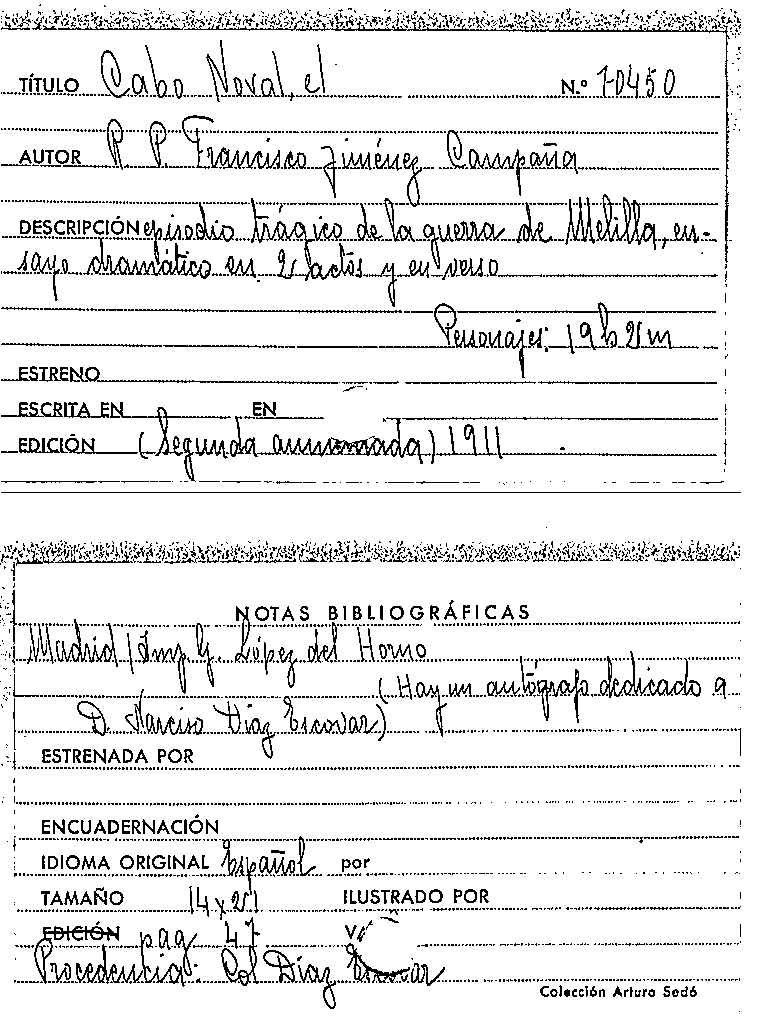 TÍTULO Cabo Noval, el N.º 70450
AUTOR R. P. Francisco Jiménez Campaña
DESCRIPCIÓN episodio trágico de la guerra de Melilla, en-
sayo dramático en 2 actos y en verso
Personajes: 19 h 2 m
ESTRENO
ESCRITA EN EN
EDICIÓN (Segunda) 1911
NOTAS BIBLIOGRÁFICAS
Madrid / Imp G. López del Horno
(Hay un autógrafo dedicado a
D. Narciso Diaz Escovar)
ESTRENADA POR
ENCUADERNACIÓN
IDIOMA ORIGINAL Español por
TAMAÑO 14 x 21 ILUSTRADO POR
EDICIÓN pag 47
Procedencia: Col Diaz Escovar
Colección Arturo Sedó